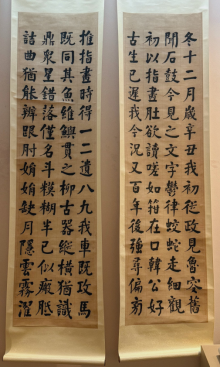 冬十二月歲辛丑我初從政見魯叟舊
聞石鼓今見之文字鬱律蛟蛇走細觀
初以指畫肚欲讀嗟如箝在口韓公好
古生已遲我今況又百年後強尋偏旁
推指畫時得一二遺八九我車既攻馬
既同其魚維鱮貫之柳古器縱橫猶識
鼎眾星錯落僅名斗模糊半已似瘢胝
詰曲猶能辨跟肘娟娟缺月隱雲霧濯